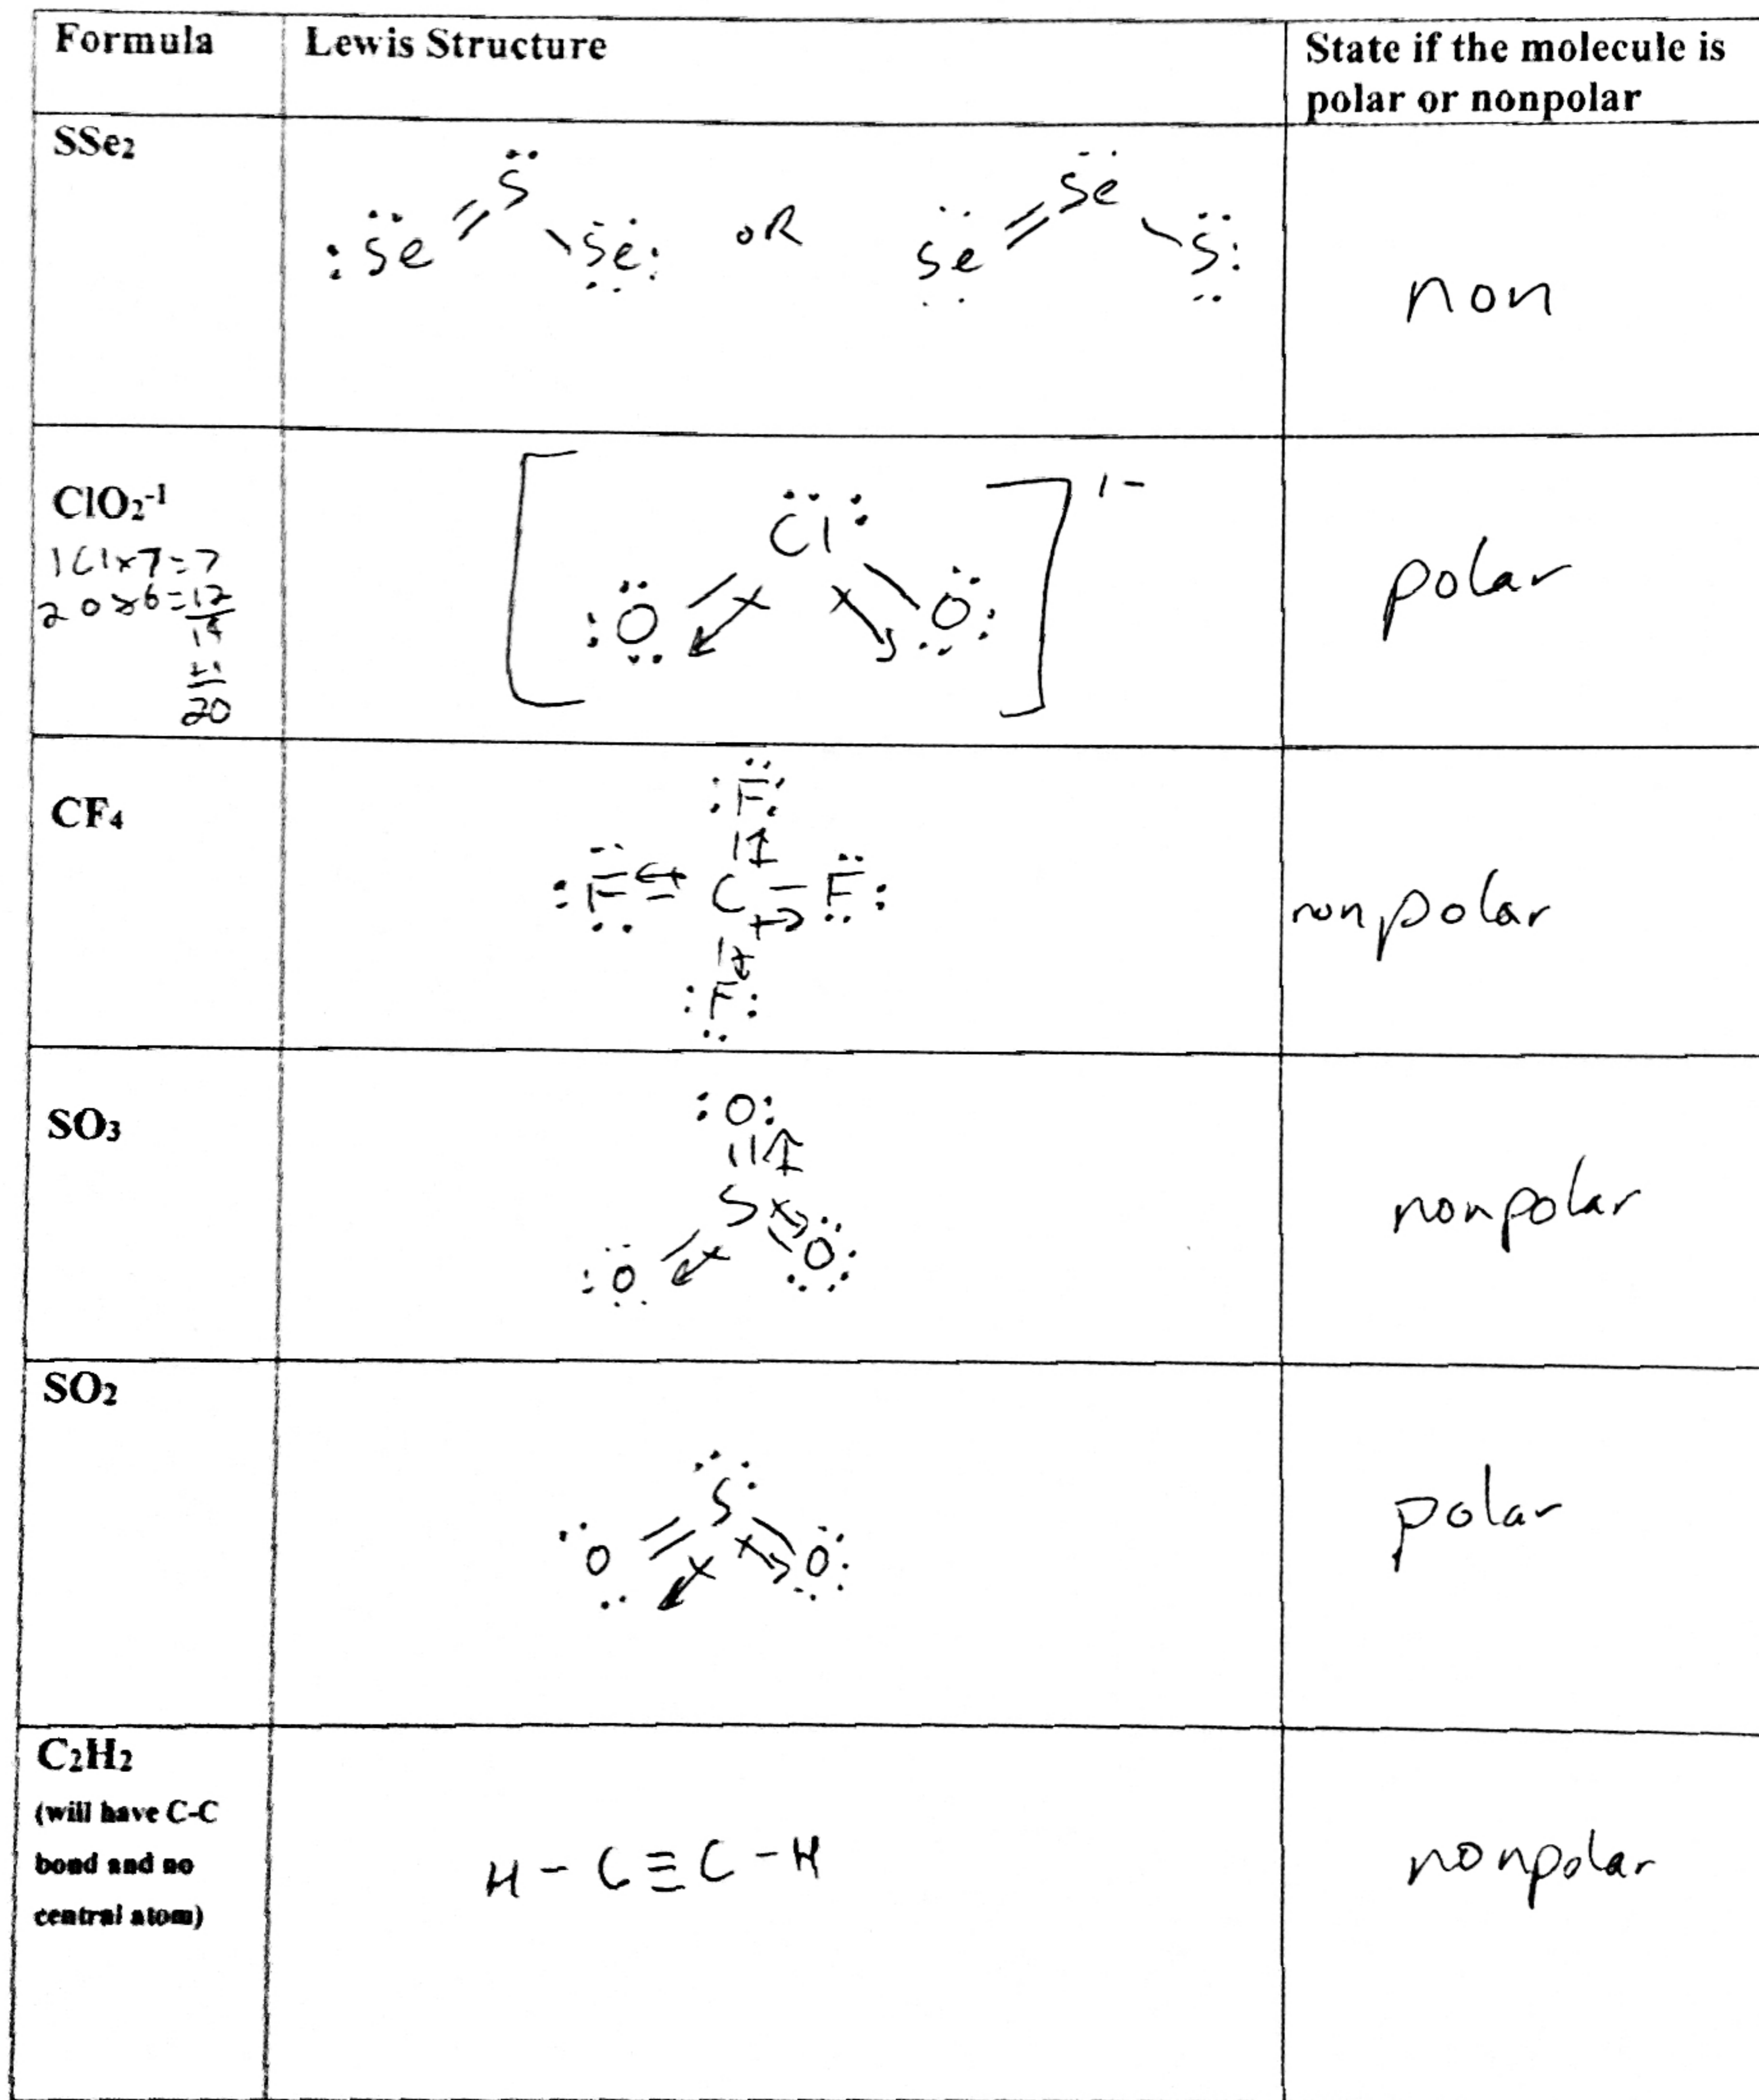 Formula Lewis Structure State if the molecule is
polar or nonpolar
SSe₂
S
Se = \ Se oR Se = Se \ S
non
ClO₂⁻¹
1Cl×7=7
2O×6=12
19
+1
20
[ Cl O O ] 1-
polar
CF₄
F
F - C - F
F
nonpolar
SO₃
O
S
O O
nonpolar
SO₂
S
O O
polar
C₂H₂
(will have C-C
bond and no
central atom)
H - C ≡ C - H
nonpolar